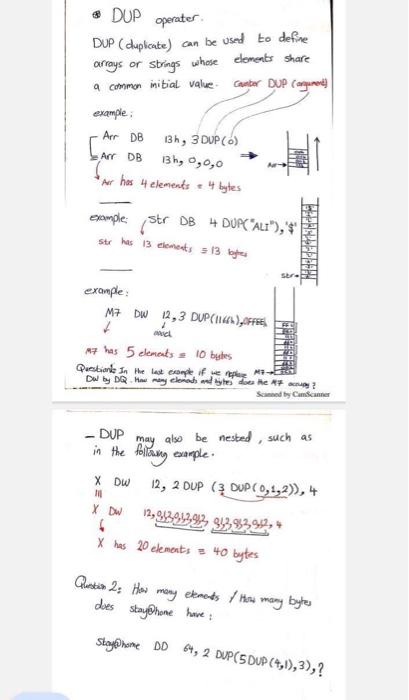 ⊛ DUP operater.
DUP (duplicate) can be used to define
arrays or strings whose elements share
a common initial value. Counter DUP (argument)
example:
Arr DB 13h, 3 DUP(0)
≡ Arr DB 13h, 0,0,0
Arr
Arr has 4 elements = 4 bytes
example: Str DB 4 DUP("ALI"),'$'
str has 13 elements ≡ 13 bytes
str→
example:
M7 DW 12, 3 DUP(1166h), 0FFEEh
M7 has 5 elements ≡ 10 bytes
M7→
Question: In the last example if we replace
DW by DQ. How many elements and bytes does the M7 occupy?
Scanned by CamScanner
– DUP may also be nested, such as
in the following example.
X DW 12, 2 DUP (3 DUP(0,1,2)), 4
X DW 12, 0,1,2,0,1,2,0,1,2, 0,1,2,0,1,2,0,1,2, 4
X has 20 elements ≡ 40 bytes
Question 2: How many elements / How many bytes
does stay@home have:
Stay@home DD 64, 2 DUP(5 DUP(4,1),3),?